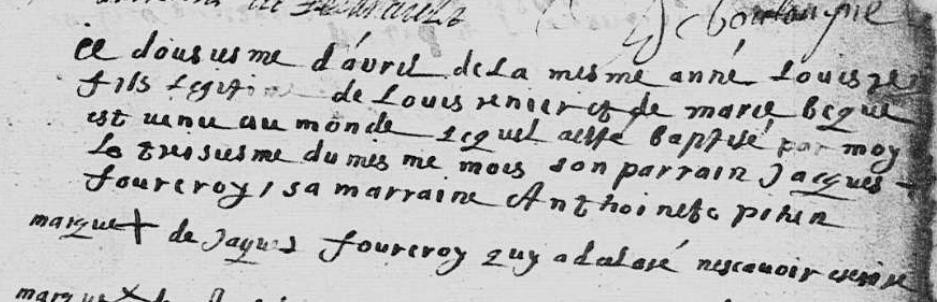 Boulongne
ce dousiesme d'avril de la mesme anné Louis re
fils legitime de Louis renier et de marie beque
est venu au monde lequel a esté baptisé par moy
le tresiesme du mesme mois son parrain Jacques
fourcroy, sa marraine Anthoinete
marque + de Jaques fourcroy quy a declaré nescavoir escrire
marque + de